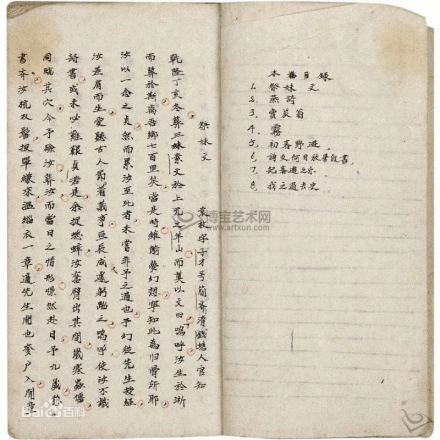 本書目錄
1. 祭妹文
2. 燕詩
3. 賣炭翁
4. 霧
5. 初春野遊
6. 詩文何日放
7. 記春遊之樂
8. 我之過去史
祭妹文
袁枚字子才号簡齋清錢塘人官知
乾隆丁亥冬葬三妹素文於上元之羊山而奠以文曰嗚呼汝生於浙
而葬於斯離吾鄉七百里矣當是時雖觭夢幻想寧知此為歸骨所耶
汝以一念之貞然而累汝至此者未嘗非予之過也予幼從先生授經
汝差肩而坐愛聽古人節義事一旦長成遽躬蹈之嗚呼使汝不識
詩書或未必艱貞若是余捉蟋蟀汝奮臂出其間歲寒蟲僵
同臨其穴今予殮汝葬汝而當日之情形憬然赴目予九歲憩
書齋汝梳雙髻披單縑來溫緇衣一章適先生聞也奓戶入聞
博宝艺术网
www.artxun.com
Baidu百科